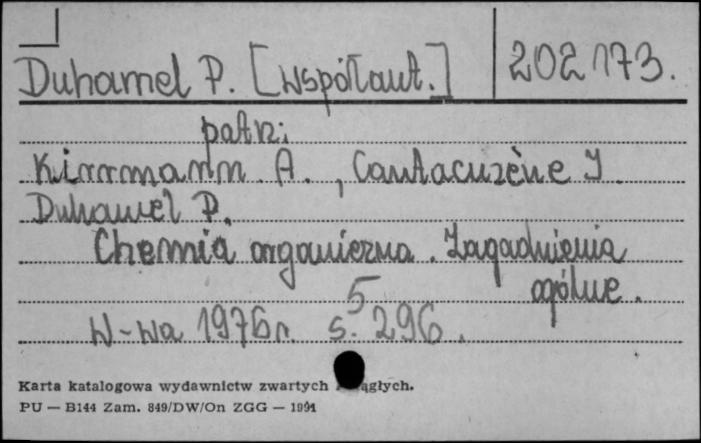 Duhamel P. [współaut.] 202 173.
patrz:
Kirrmann A., Cantacuzène J.
Duhamel P.
Chemia organiczna. Zagadnienia
ogólne.
5
W-wa 1976r. s. 296.
Karta katalogowa wydawnictw zwartych ciągłych.
PU — B144 Zam. 849/DW/On ZGG — 1991